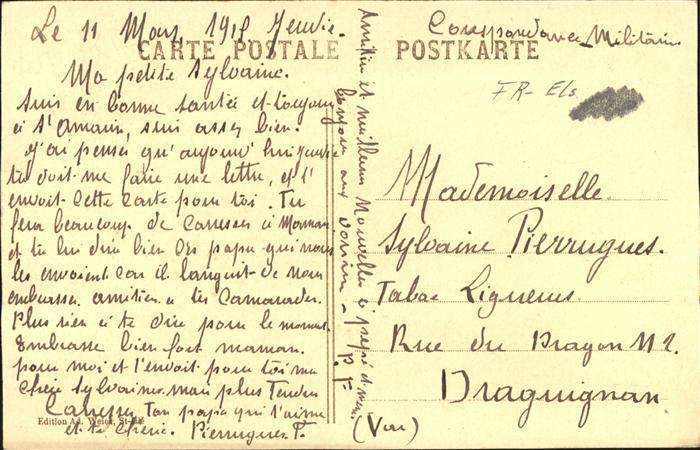 Le 11 Mars 1918
CARTE POSTALE
POSTKARTE
Correspondance Militaire
FR- Els
Ma petite Sylvaine.
Suis en bonne santée et toujours
à St Amarin, suis assez bien.
J'ai penser qu'aujourd'hui
tu doit me faire une lettre, et t'
envoit cette carte pour toi. Tu
fera beaucoup de Caresses à Maman
et tu lui dira bien des papa qui nous
les envoient car il languit de nous
embrasser. amitiés à tes Camarades.
Plus rien à te dire pour le moment.
Embrasse bien fort maman.
pour moi et t'envoit pour toi ma
chère Sylvaine mais plus Tendres
Caresses Ton papa qui t'aime
et te chérie. Pierrugues F.
Edition Ad. Weick, St-Dié
Amitiés et meilleures Nouvelles à
bonjour aux voisins - P. F
Mademoiselle
Sylvaine Pierrugues.
Tabac Ligneus
Rue du Dragon N 2.
Draguignan
(Var)